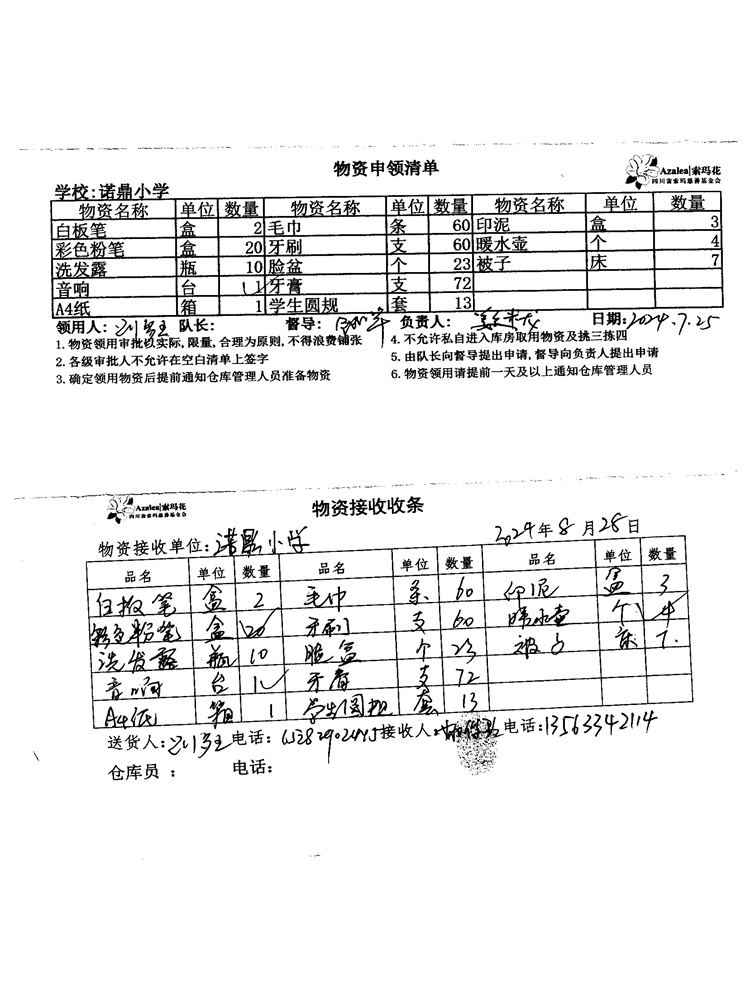 物资申领清单
Azalea|索玛花
四川省索玛慈善基金会
学校:诺鼎小学
物资名称 单位 数量 物资名称 单位 数量 物资名称 单位 数量
白板笔 盒 2 毛巾 条 60 印泥 盒 3
彩色粉笔 盒 20 牙刷 支 60 暖水壶 个 4
洗发露 瓶 10 脸盆 个 23 被子 床 7
音响 台 1 牙膏 支 72
A4纸 箱 1 学生圆规 套 13
领用人: 队长: 督导: 负责人: 日期:2024.7.25
1.物资领用审批以实际,限量,合理为原则,不得浪费铺张 4.不允许私自进入库房取用物资及挑三拣四
2.各级审批人不允许在空白清单上签字 5.由队长向督导提出申请,督导向负责人提出申请
3.确定领用物资后提前通知仓库管理人员准备物资 6.物资领用请提前一天及以上通知仓库管理人员
Azalea|索玛花
四川省索玛慈善基金会
物资接收收条
物资接收单位:诺鼎小学 2024年8月28日
品名 单位 数量 品名 单位 数量 品名 单位 数量
白板笔 盒 2 毛巾 条 60 印泥 盒 3
彩色粉笔 盒 20 牙刷 支 60 暖水壶 个 4
洗发露 瓶 10 脸盆 个 23 被子 床 7
音响 台 1 牙膏 支 72
A4纸 箱 1 学生圆规 套 13
送货人: 电话: 接收人: 电话:13563342114
仓库员: 电话: